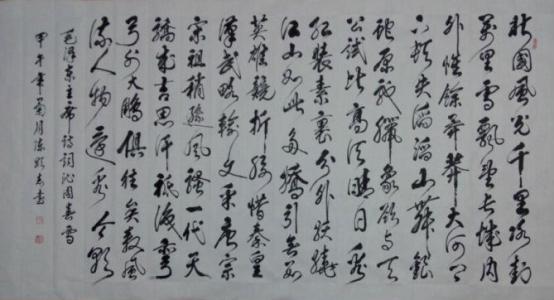 北國風光千里冰封
萬里雪飄望長城內
外惟餘莽莽大河上
下頓失滔滔山舞銀
蛇原馳臘象欲與天
公試比高須晴日看
紅裝素裹分外妖嬈
江山如此多嬌引無數
英雄競折腰惜秦皇
漢武略輸文采唐宗
宋祖稍遜風騷一代天
驕成吉思汗祗識彎
弓射大鵰俱往矣數風
流人物還看今朝
毛澤東主席詩詞沁園春雪
甲午年菊月陈书